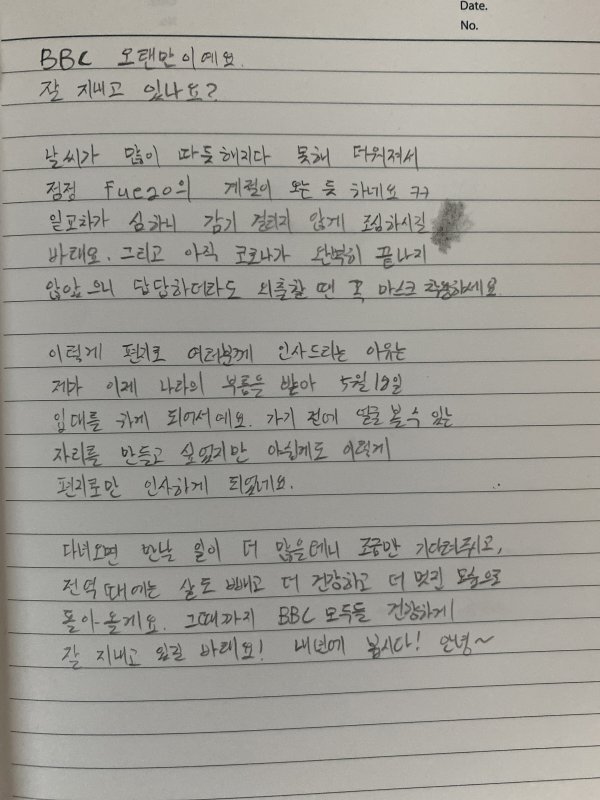 Date.
No.
BBC 오랜만이예요.
잘 지내고 있나요?
날씨가 많이 따듯해지다 못해 더워져서
점점 Fuego의 계절이 오는 듯 하네요 ㅋㅋ
일교차가 심하니 감기 걸리지 않게 조심하시길
바래요. 그리고 아직 코로나가 완벽히 끝나지
않았으니 답답하더라도 외출할 땐 꼭 마스크 착용하세요
이렇게 편지로 여러분께 인사드리는 이유는
제가 이제 나라의 부름을 받아 5월 19일
입대를 하게 되어서예요. 가기 전에 얼굴 볼 수 있는
자리를 만들고 싶었지만 아쉽게도 이렇게
편지로만 인사하게 되었네요.
다녀오면 만날 일이 더 많을테니 조금만 기다려주고,
전역 때에는 살도 빼고 더 건강하고 더 멋진 모습으로
돌아올게요. 그때까지 BBC 모두들 건강하게
잘 지내고 있길 바래요! 내년에 봅시다! 안녕~